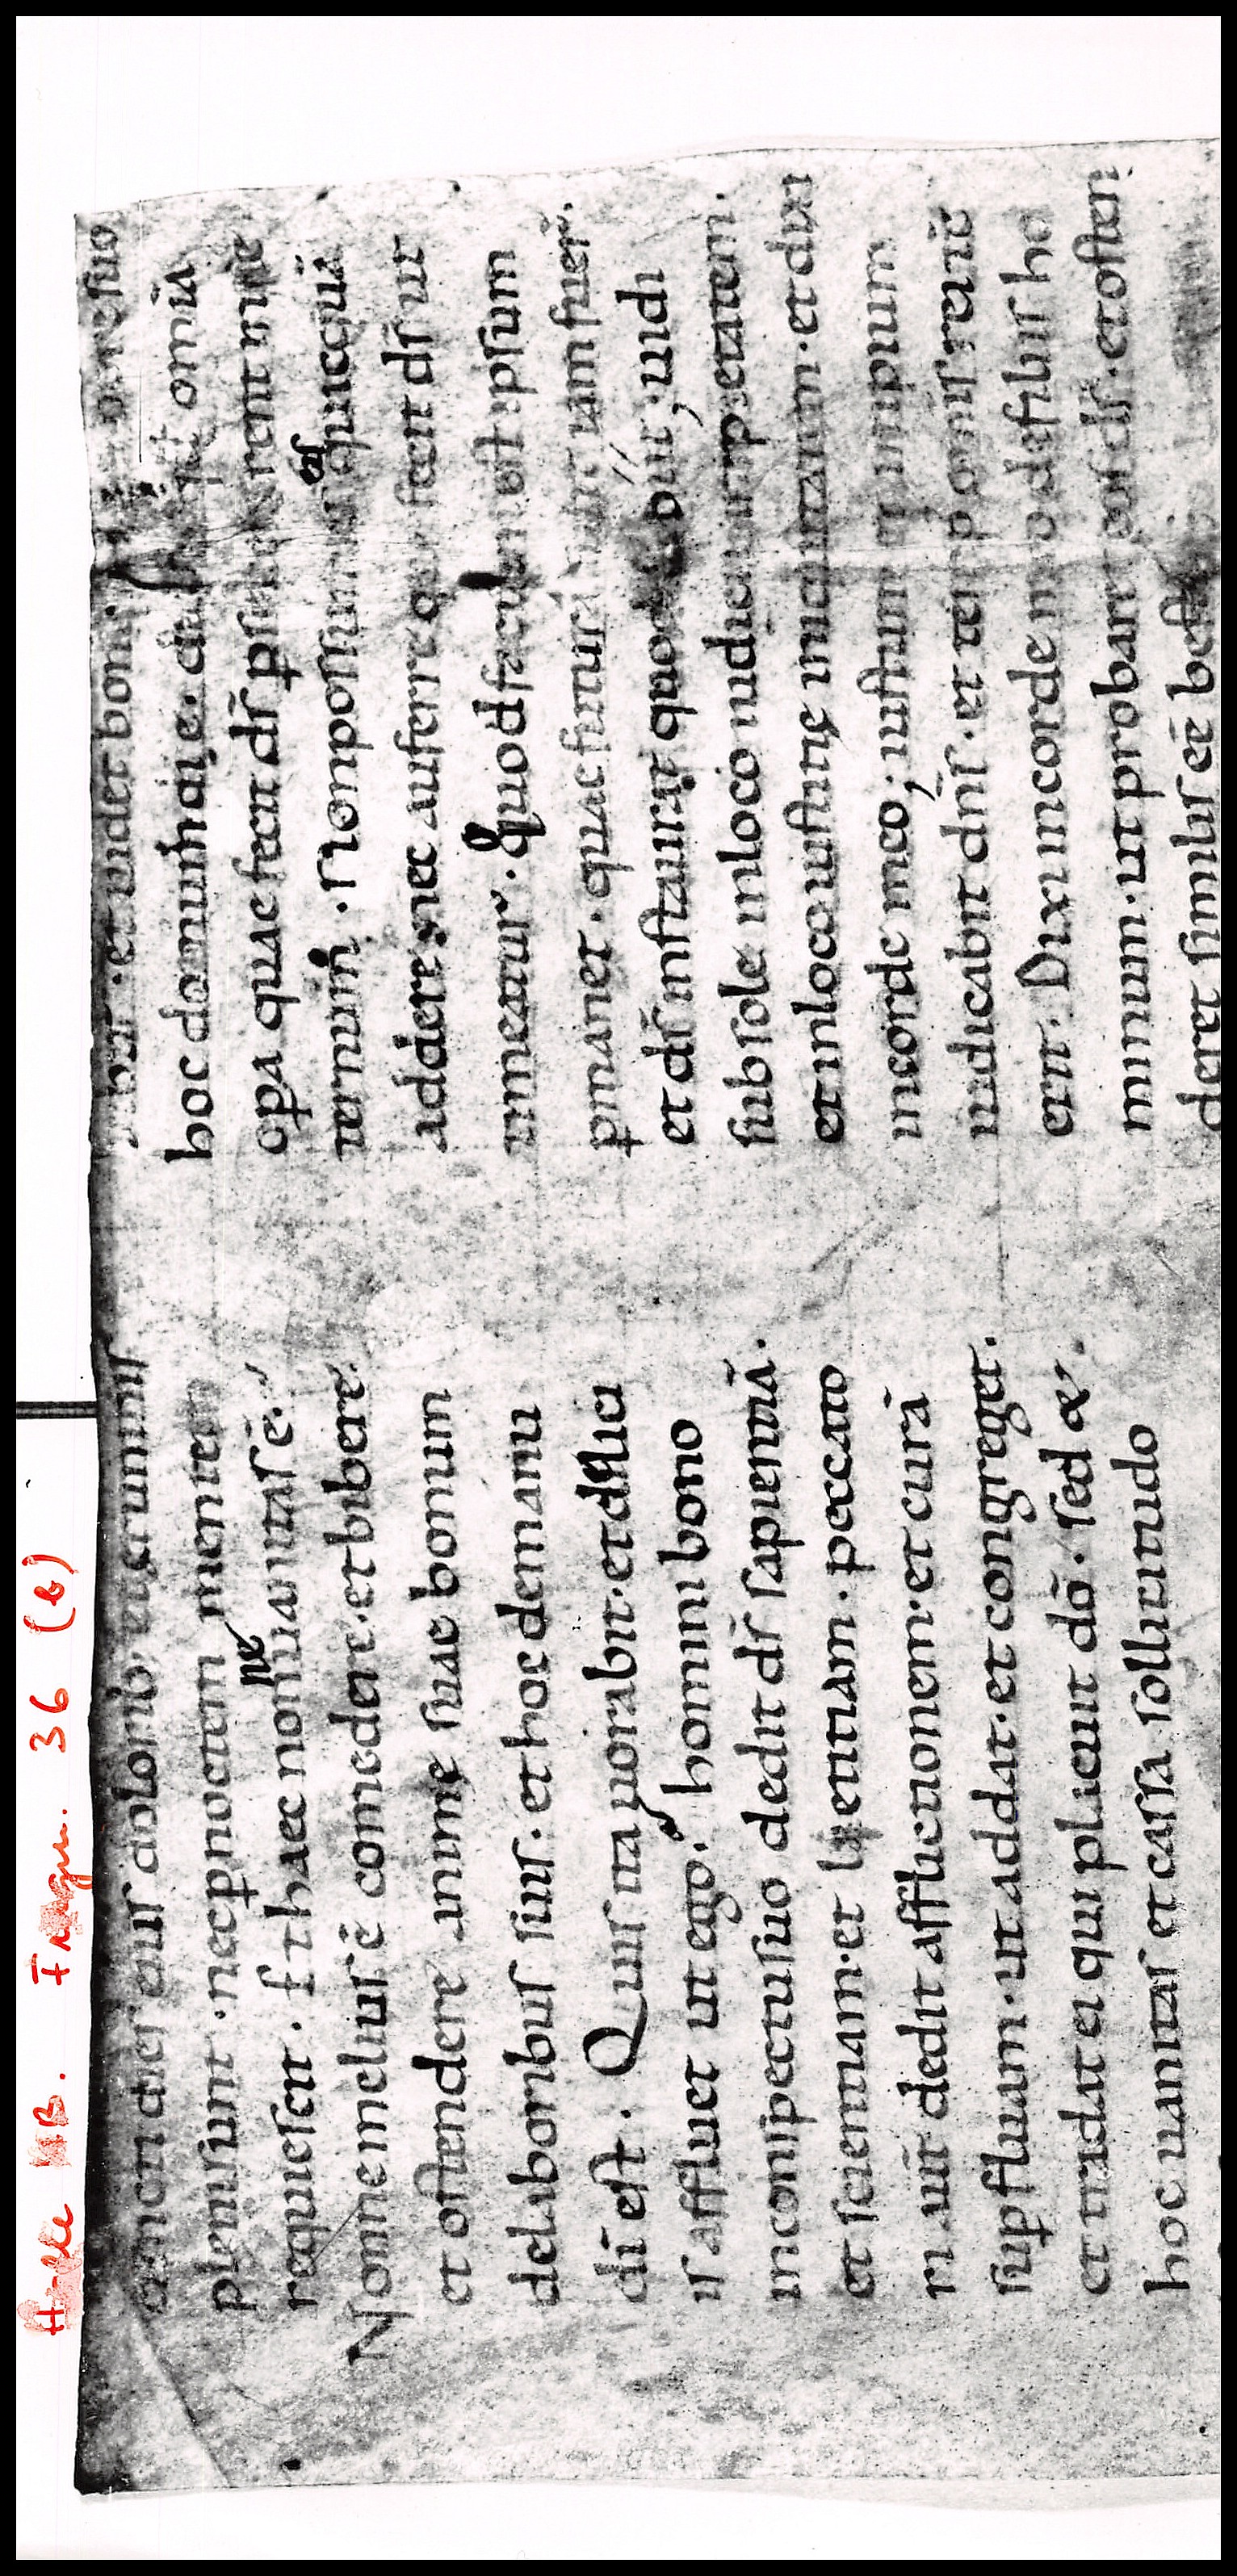 Halle UB. Fragm. 36 (b)
cuncti dies eius dolorib; et erumnis
pleni sunt . nec p noctem mente
requiescit . et haec non ne uanitas ē.
Nonne melius ē comedere . et bibere .
et ostendere anime suae bonum
de laboribus suis . et hoc de manu
dī est . Quis ita uorabit . et delici
is affluet ut ego . homini bono
in conspectu suo dedit ds sapientiā .
et scientiam . et laetitiam . peccato
ri aūt dedit afflictionem . et curā
supfluam . ut addat . et congreget .
et tradat ei qui placuit dō . sed &
hoc uanitas et cassa sollicitudo
et uidet bonū suo
hoc donum di ē . omīa
opa quae fecit ds pseuerent in
ternum . Non possumus eis quicquā
addere nec auferre quę fecit ds ut
timeatur . quod factum est ipsum
pmanet . quae futura sunt iam fuer̄ .
et ds instaurat quod abiit ; uidi
sub sole in loco iudicii impietatem .
et in loco iustitię iniquitatem . et dixi
in corde meo ; iustum et impium
iudicabit dns . et tempus omīs rei tūc
erit . Dixi in corde meo de filiis ho
minum . ut probaret eos ds . et osten
deret similes eē best